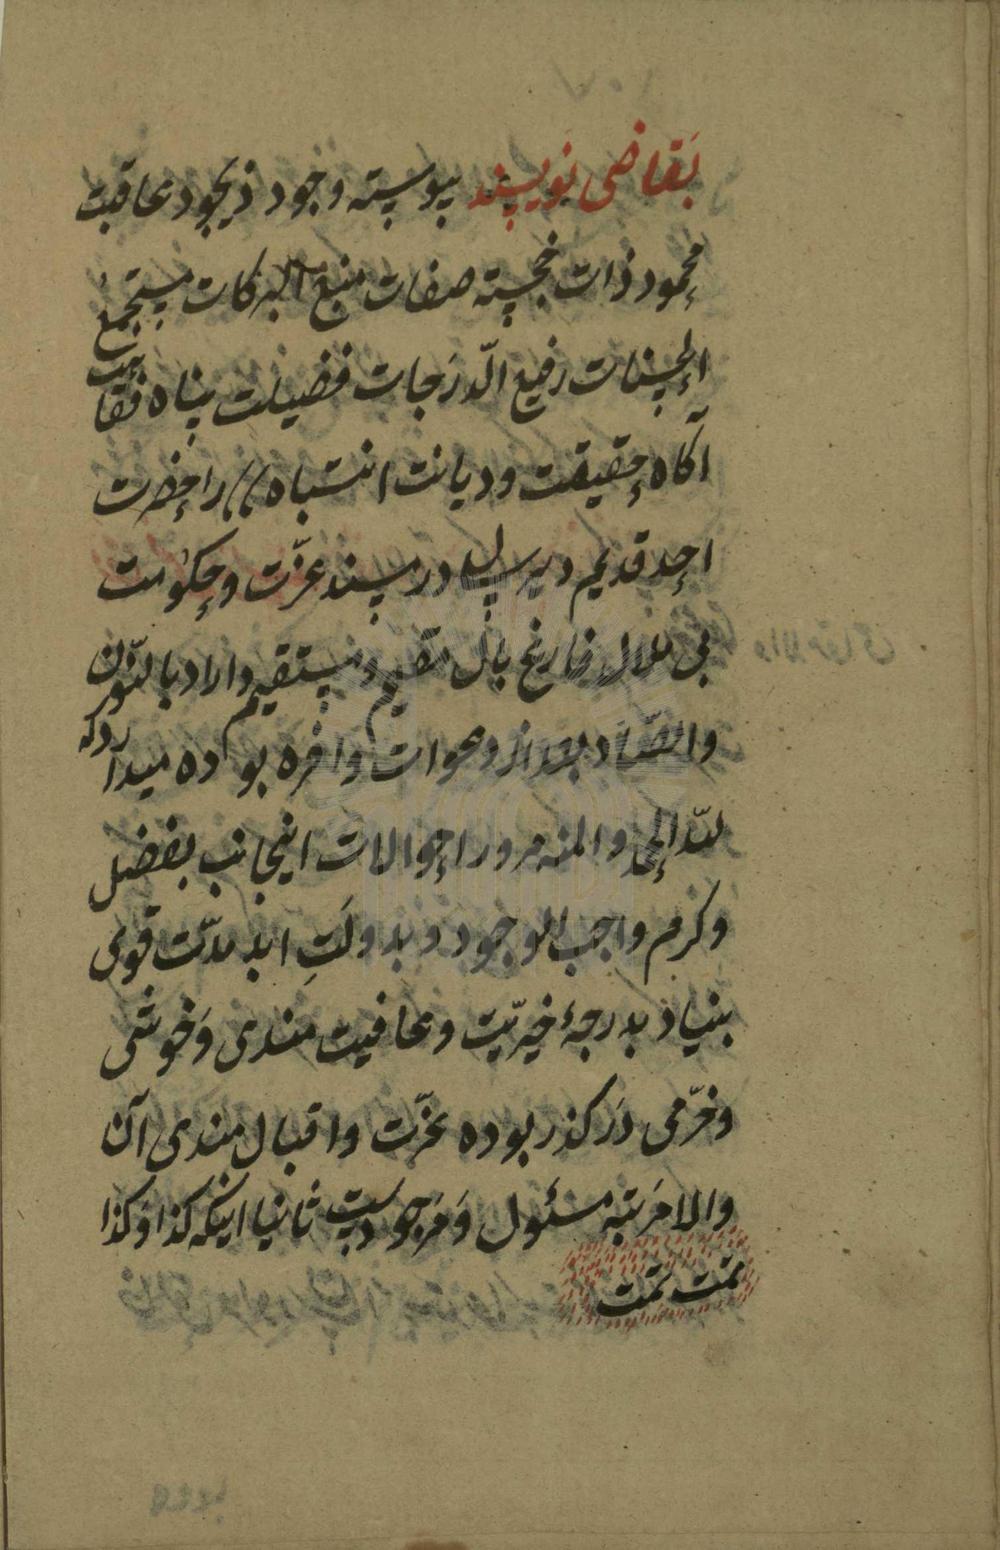 بقاضی نویسند پیوسته وجود ذیجود عاقبت
محمود ذات خجسته صفات منبع البرکات مستجمع
الحسنات رفیع الدّرجات فضیلت پناه فقاهت
آکاه حقیقت و دیانت انتباه // را حضرت
احد قدیم دیر سال در مسند عزّت و حکومت
بی ملال فارغ بال مقیم و مستقیم داراد بالنّون
والصّاد بعد از دعوات وافره بوده میدارد که
للّه الحمد والمنه مرور احوالات اینجانب بفضل
وکرم واجب الوجود و بدولتِ ابد مدّت قوی
بنیاد بدرجهٔ خیریّت و عافیت مندی وَخوشی
وخرّمی دَرکذر بوده عزّت واقبال مندی آن
والامَرتبه مسئول وَمَرجودست ثانیا اینکه کذا وَکذا
تمت تمت